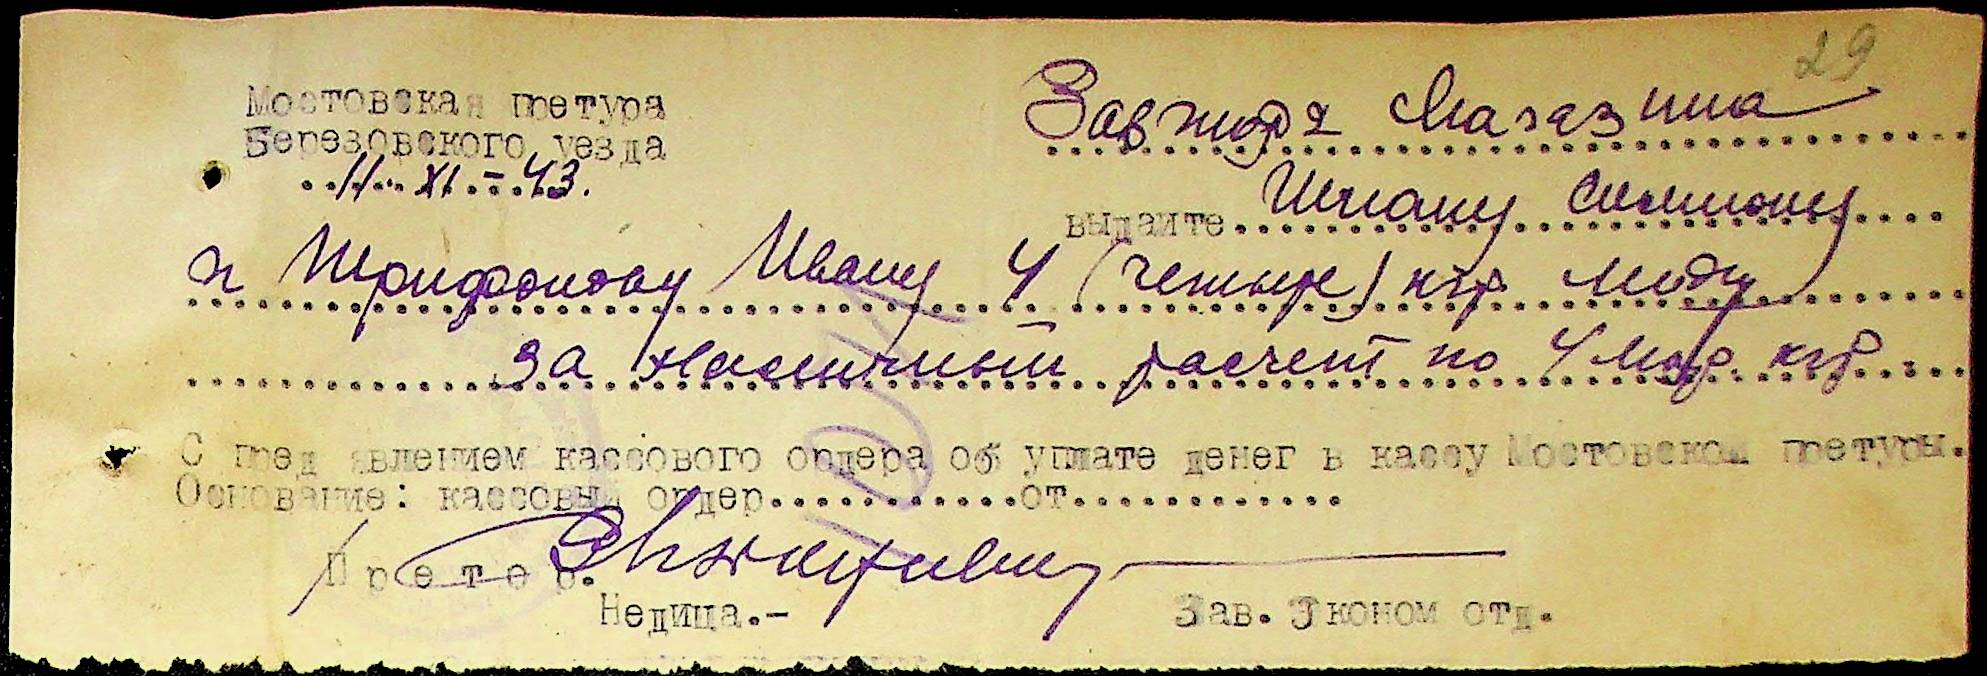 29
Мостовская претура
Березовского уезда
11. XI. - 43.
Магазина
выдайте Симиону
и Трифонову Ивану 4 (четыре) кгр. меду
за наличный расчет по 4 мар. кгр.
С пред явлением кассового ордера об уплате денег в кассу Мостовской претуры.
Основание: кассовый ордер............от.............
Претор.
Недица.-
Зав. Эконом отд.